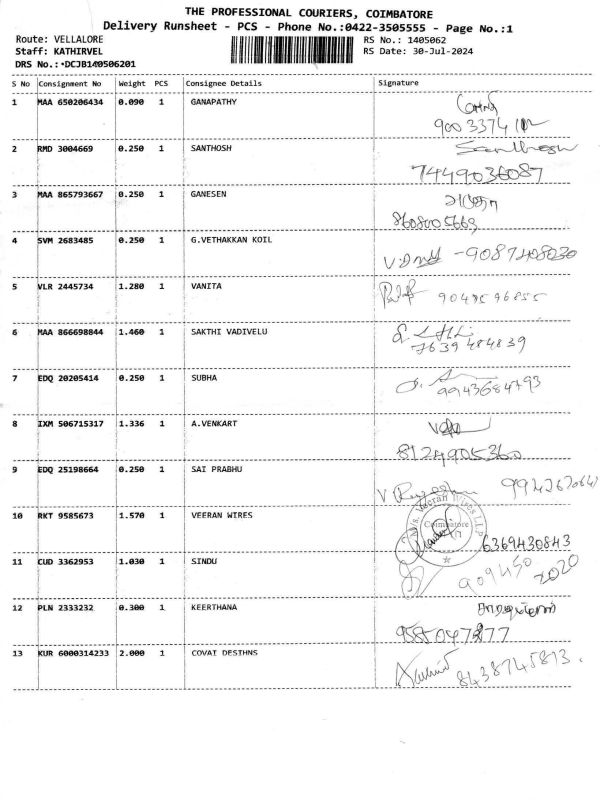 THE PROFESSIONAL COURIERS, COIMBATORE
Delivery Runsheet - PCS - Phone No.:0422-3505555 - Page No.:1
Route: VELLALORE
RS No.: 1405062
Staff: KATHIRVEL
RS Date: 30-Jul-2024
DRS No.: DCJB140506201
S No Consignment No Weight PCS Consignee Details Signature
1 MAA 650206434 0.090 1 GANAPATHY
9003374
2 RMD 3004669 0.250 1 SANTHOSH Santhosh
7449036087
3 MAA 865793667 0.250 1 GANESEN
8608005669
4 SVM 2683485 0.250 1 G.VETHAKKAN KOIL
-9087408030
5 VLR 2445734 1.280 1 VANITA
9048596855
6 MAA 866698844 1.460 1 SAKTHI VADIVELU
7639484839
7 EDQ 20205414 0.250 1 SUBHA
9943684793
8 IXM 506715317 1.336 1 A.VENKART
8124905360
9 EDQ 25198664 0.250 1 SAI PRABHU
10 RKT 9585673 1.570 1 VEERAN WIRES
M/s. Veeran Wires LLP
Coimbatore
6369430843
11 CUD 3362953 1.030 1 SINDU
909450 2020
12 PLN 2333232 0.300 1 KEERTHANA
13 KUR 6000314233 2.000 1 COVAI DESIHNS
8438745813.